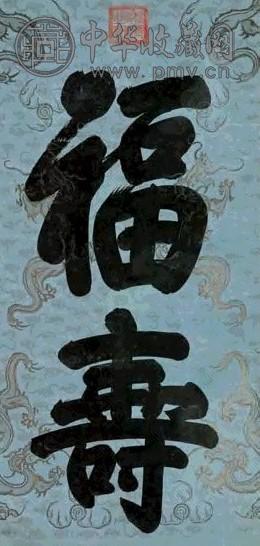 中华收藏网
www.pmv.cn
福
壽